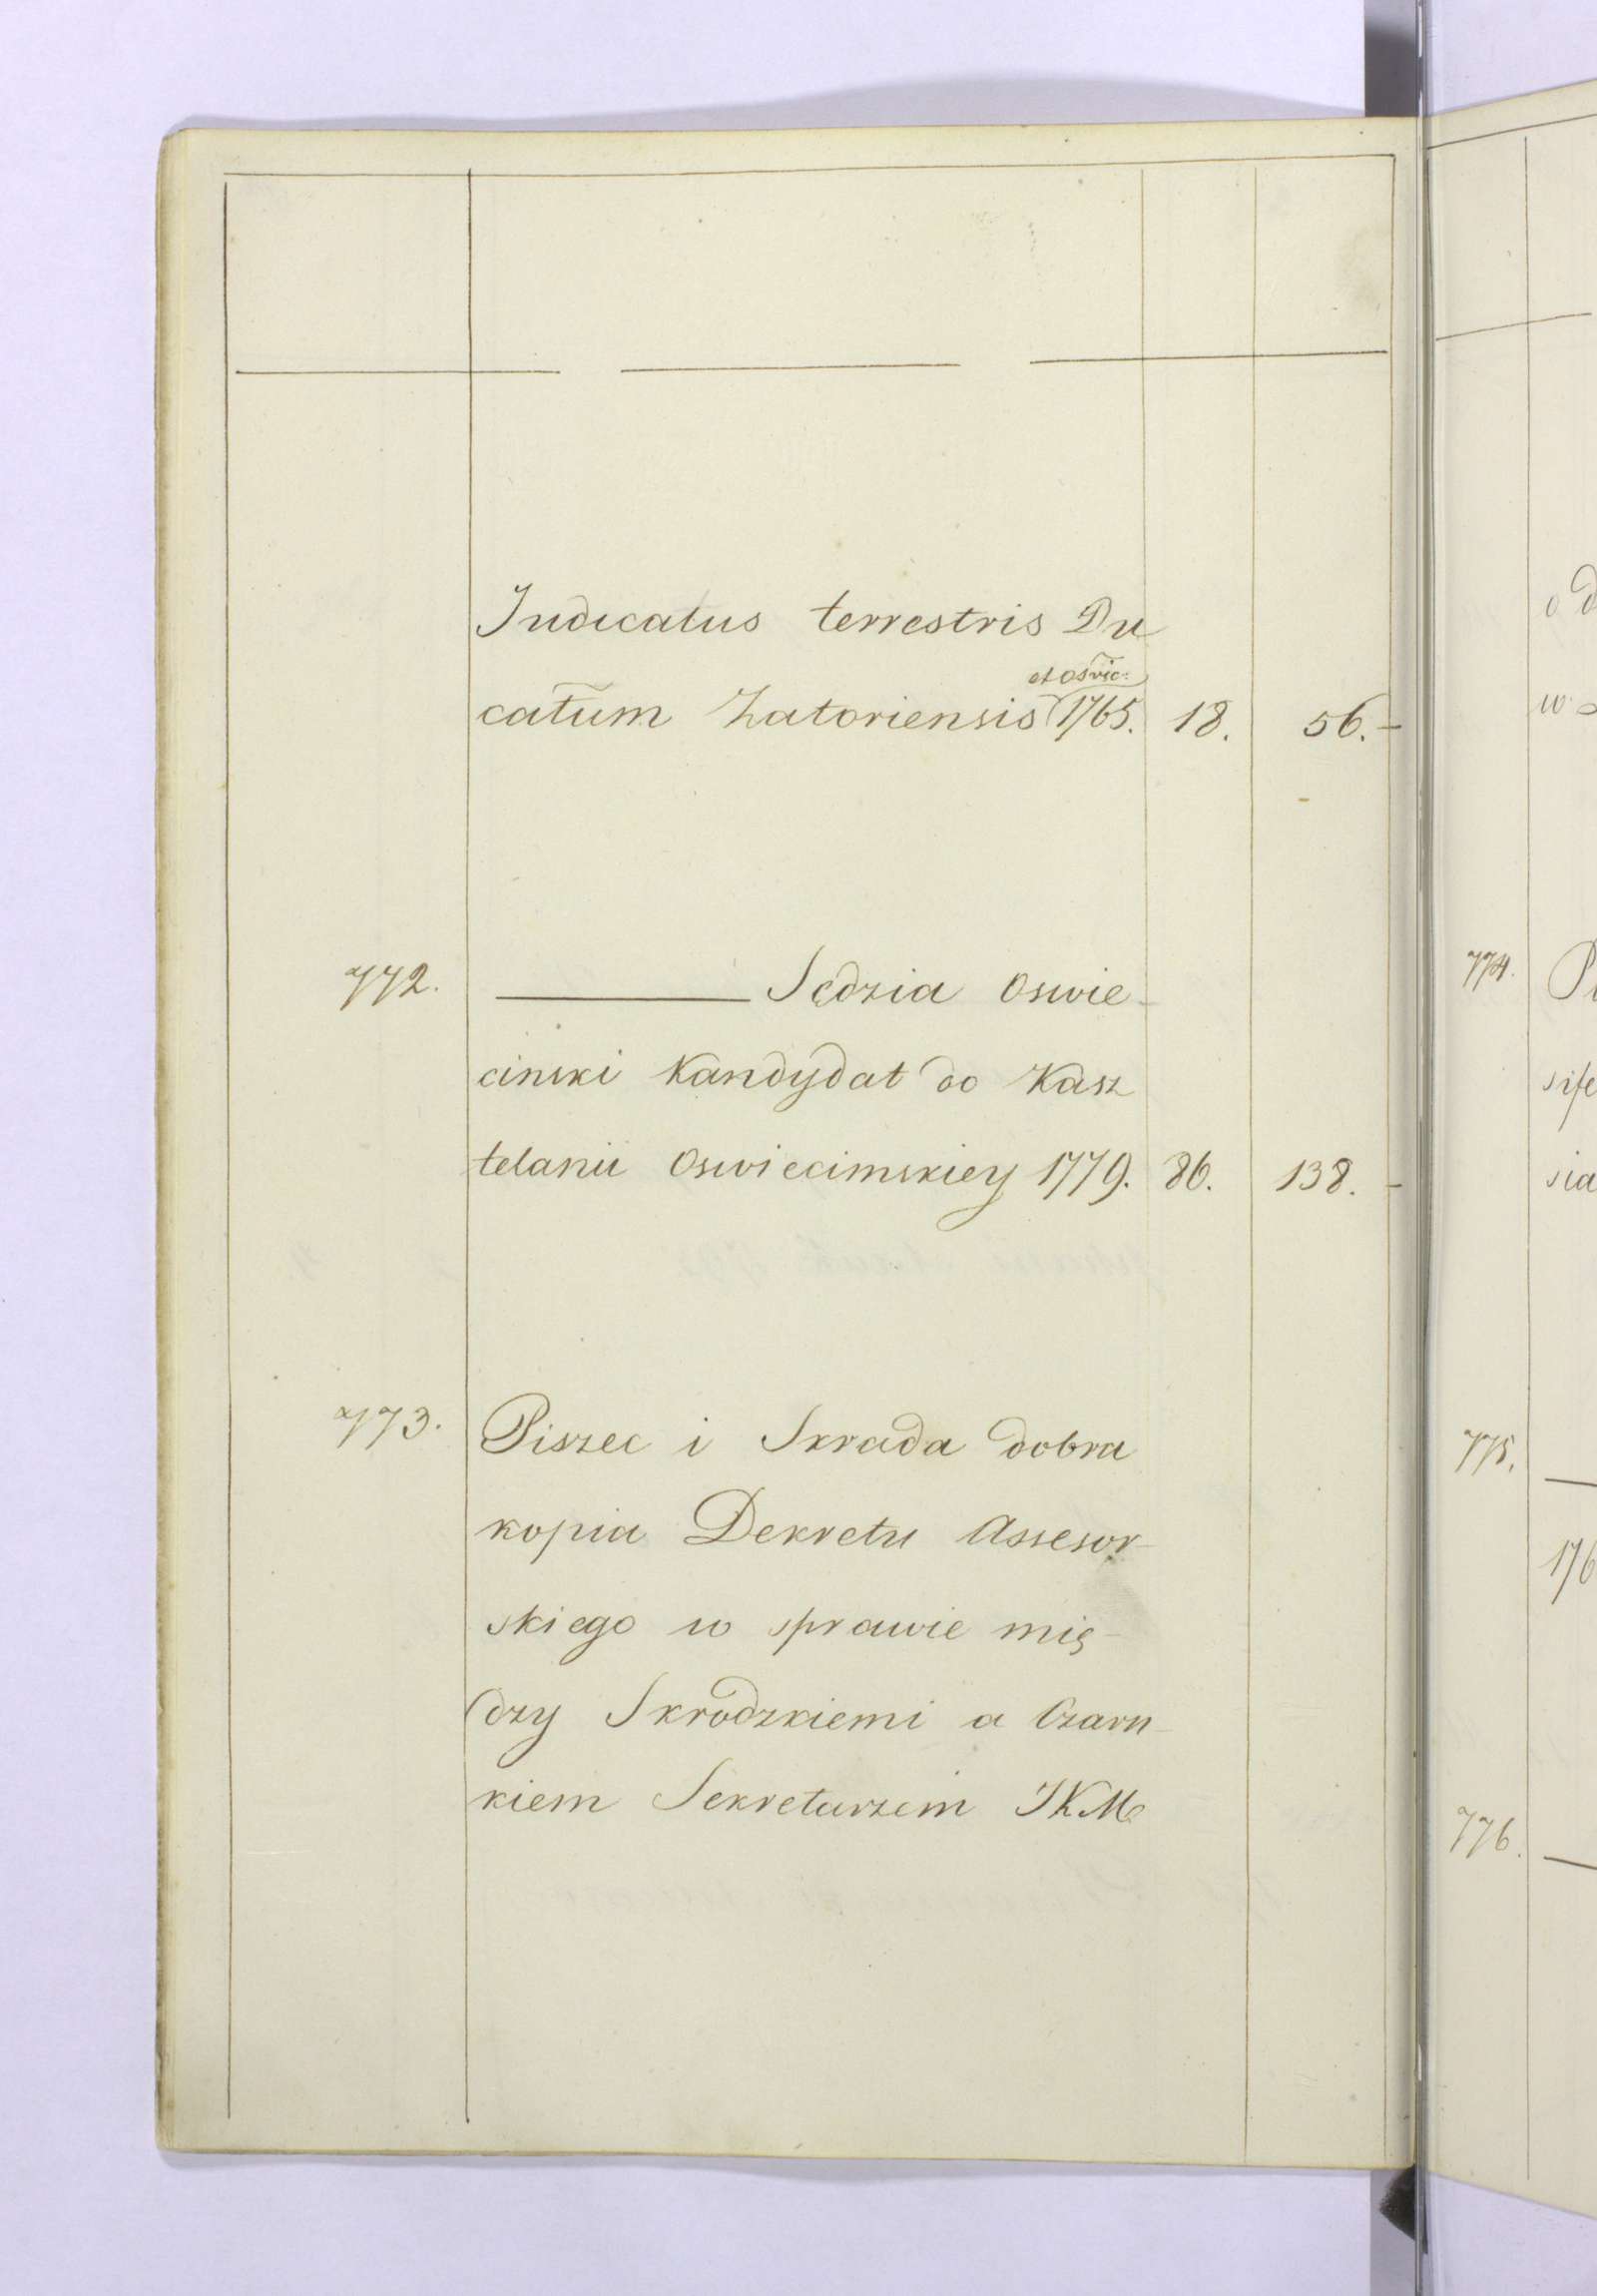 Judicatus terrestris Du
et Oswic:
catum Zatoriensis 1765. 18. 56.-
772. ——— Sędzia Oswie-
cinski Kandydat do Kasz
telanii Oswiecimskiey 1779. 86. 138. -
773. Piszec i Skrada dobra
kopia Dekretu Assesor-
skiego w sprawie mię-
dzy Skrodzkiemi a Czarn-
kiem Sekretarzem JKM
774.
775.
776.